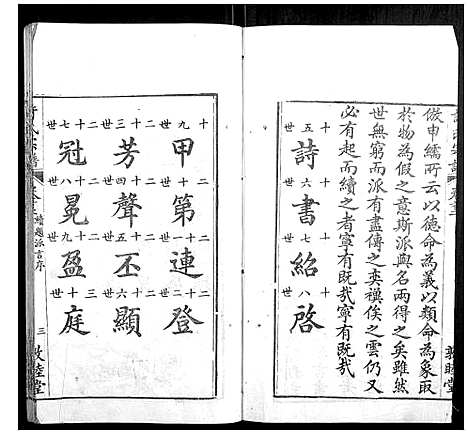 倣申繻所云以德命為義以類命為象取
於物為假之意斯派與名兩得之矣雖然
世無窮而派有盡傳之奕禩俟之雲仍又
必有起而續之者寧有既哉寧有既哉
十五世
詩
十六世
書
十七世
紹
十八世
啓
敦睦堂
十九世
甲
二十世
第
二十一世
連
二十二世
登
二十三世
芳
二十四世
聲
二十五世
丕
二十六世
顯
二十七世
冠
二十八世
冕
二十九世
盈
三十世
庭
氏宗譜
卷三
續題派言序
三
敦睦堂